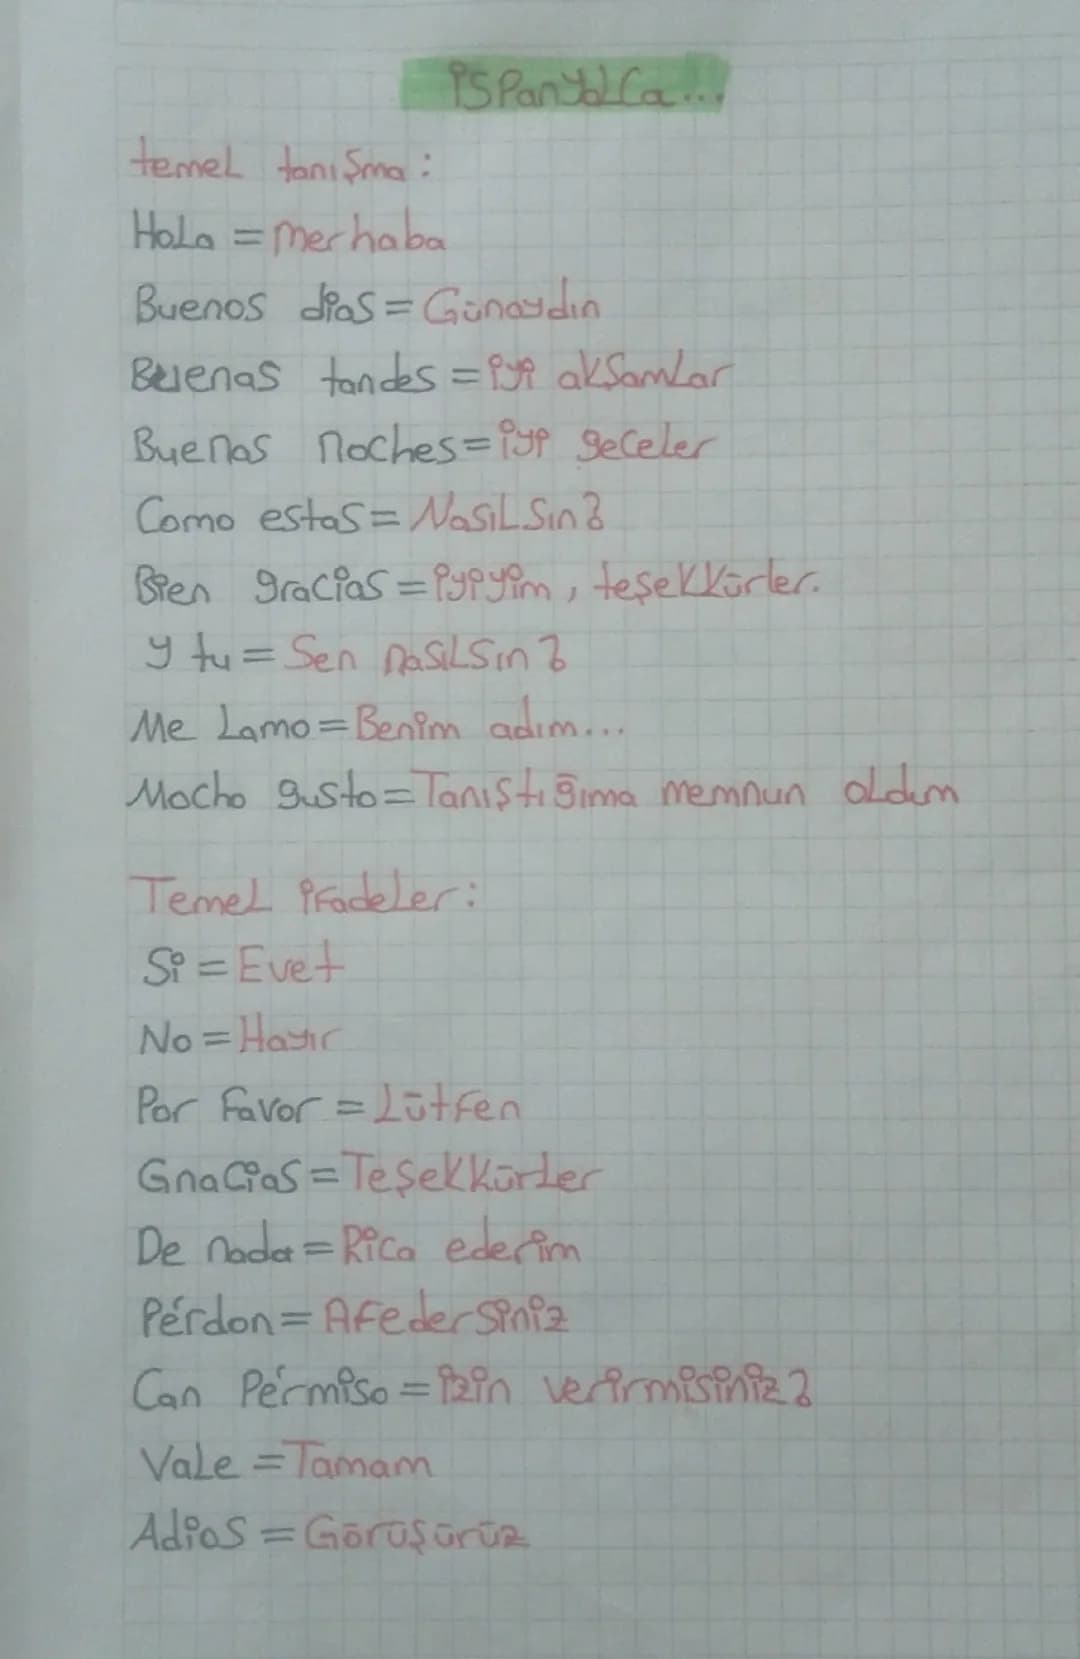 İSPanyolCa...
temel tanışma:
HoLa = merhaba
Buenos dias = Günaydın
Buenas tandes = iyi akSamLar
Buenas noches = iyi geceler
Como estas = NasıLSın?
Bien gracias = iyiyim, teşekkürler.
y tu = Sen nasıLSın?
Me Lamo = Benim adım...
Mocho gusto = Tanıştığıma memnun oldum
TemeL ifadeLer:
Si = Evet
No = Hayır
Por Favor = Lütfen
Gnacias = Teşekkürler
De nada = Rica ederim
Pérdon = Afedersiniz
Can Pérmiso = izin verirmisiniz?
VaLe = Tamam
Adios = Görüşürüz